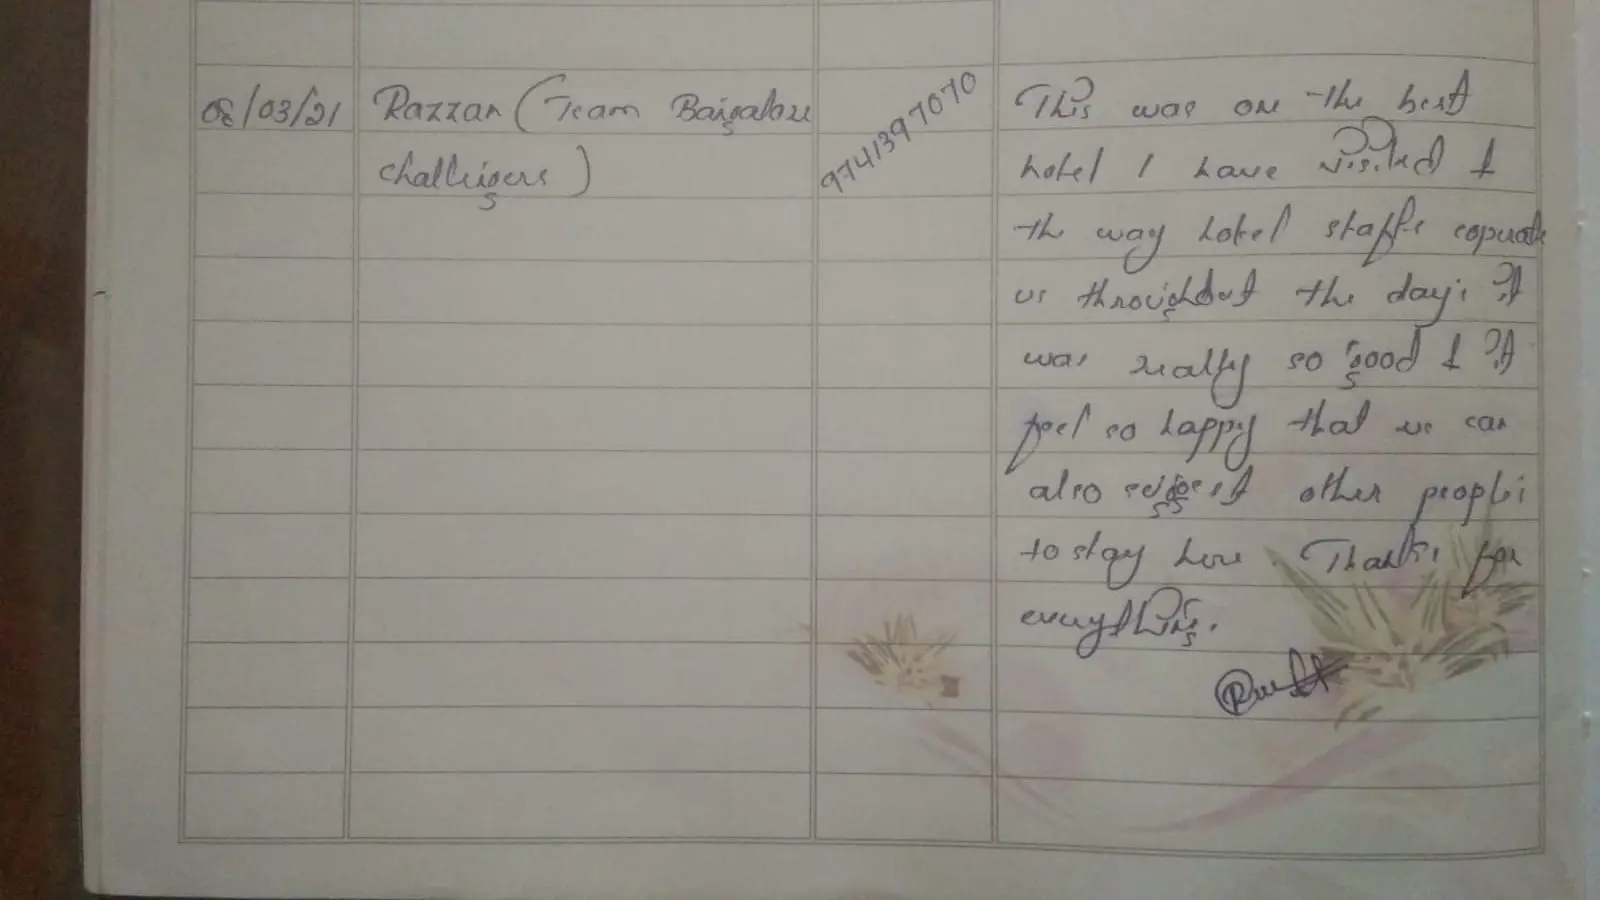 08/03/21 Razzan (Team Bangalore 9741397070 This was one the best
challrigers) hotel I have visited &
the way hotel staffs coperate
us throughout the day. It
was really so good & It
feel so happy that we can
also suggest other people
to stay here. Thanks for
everything.